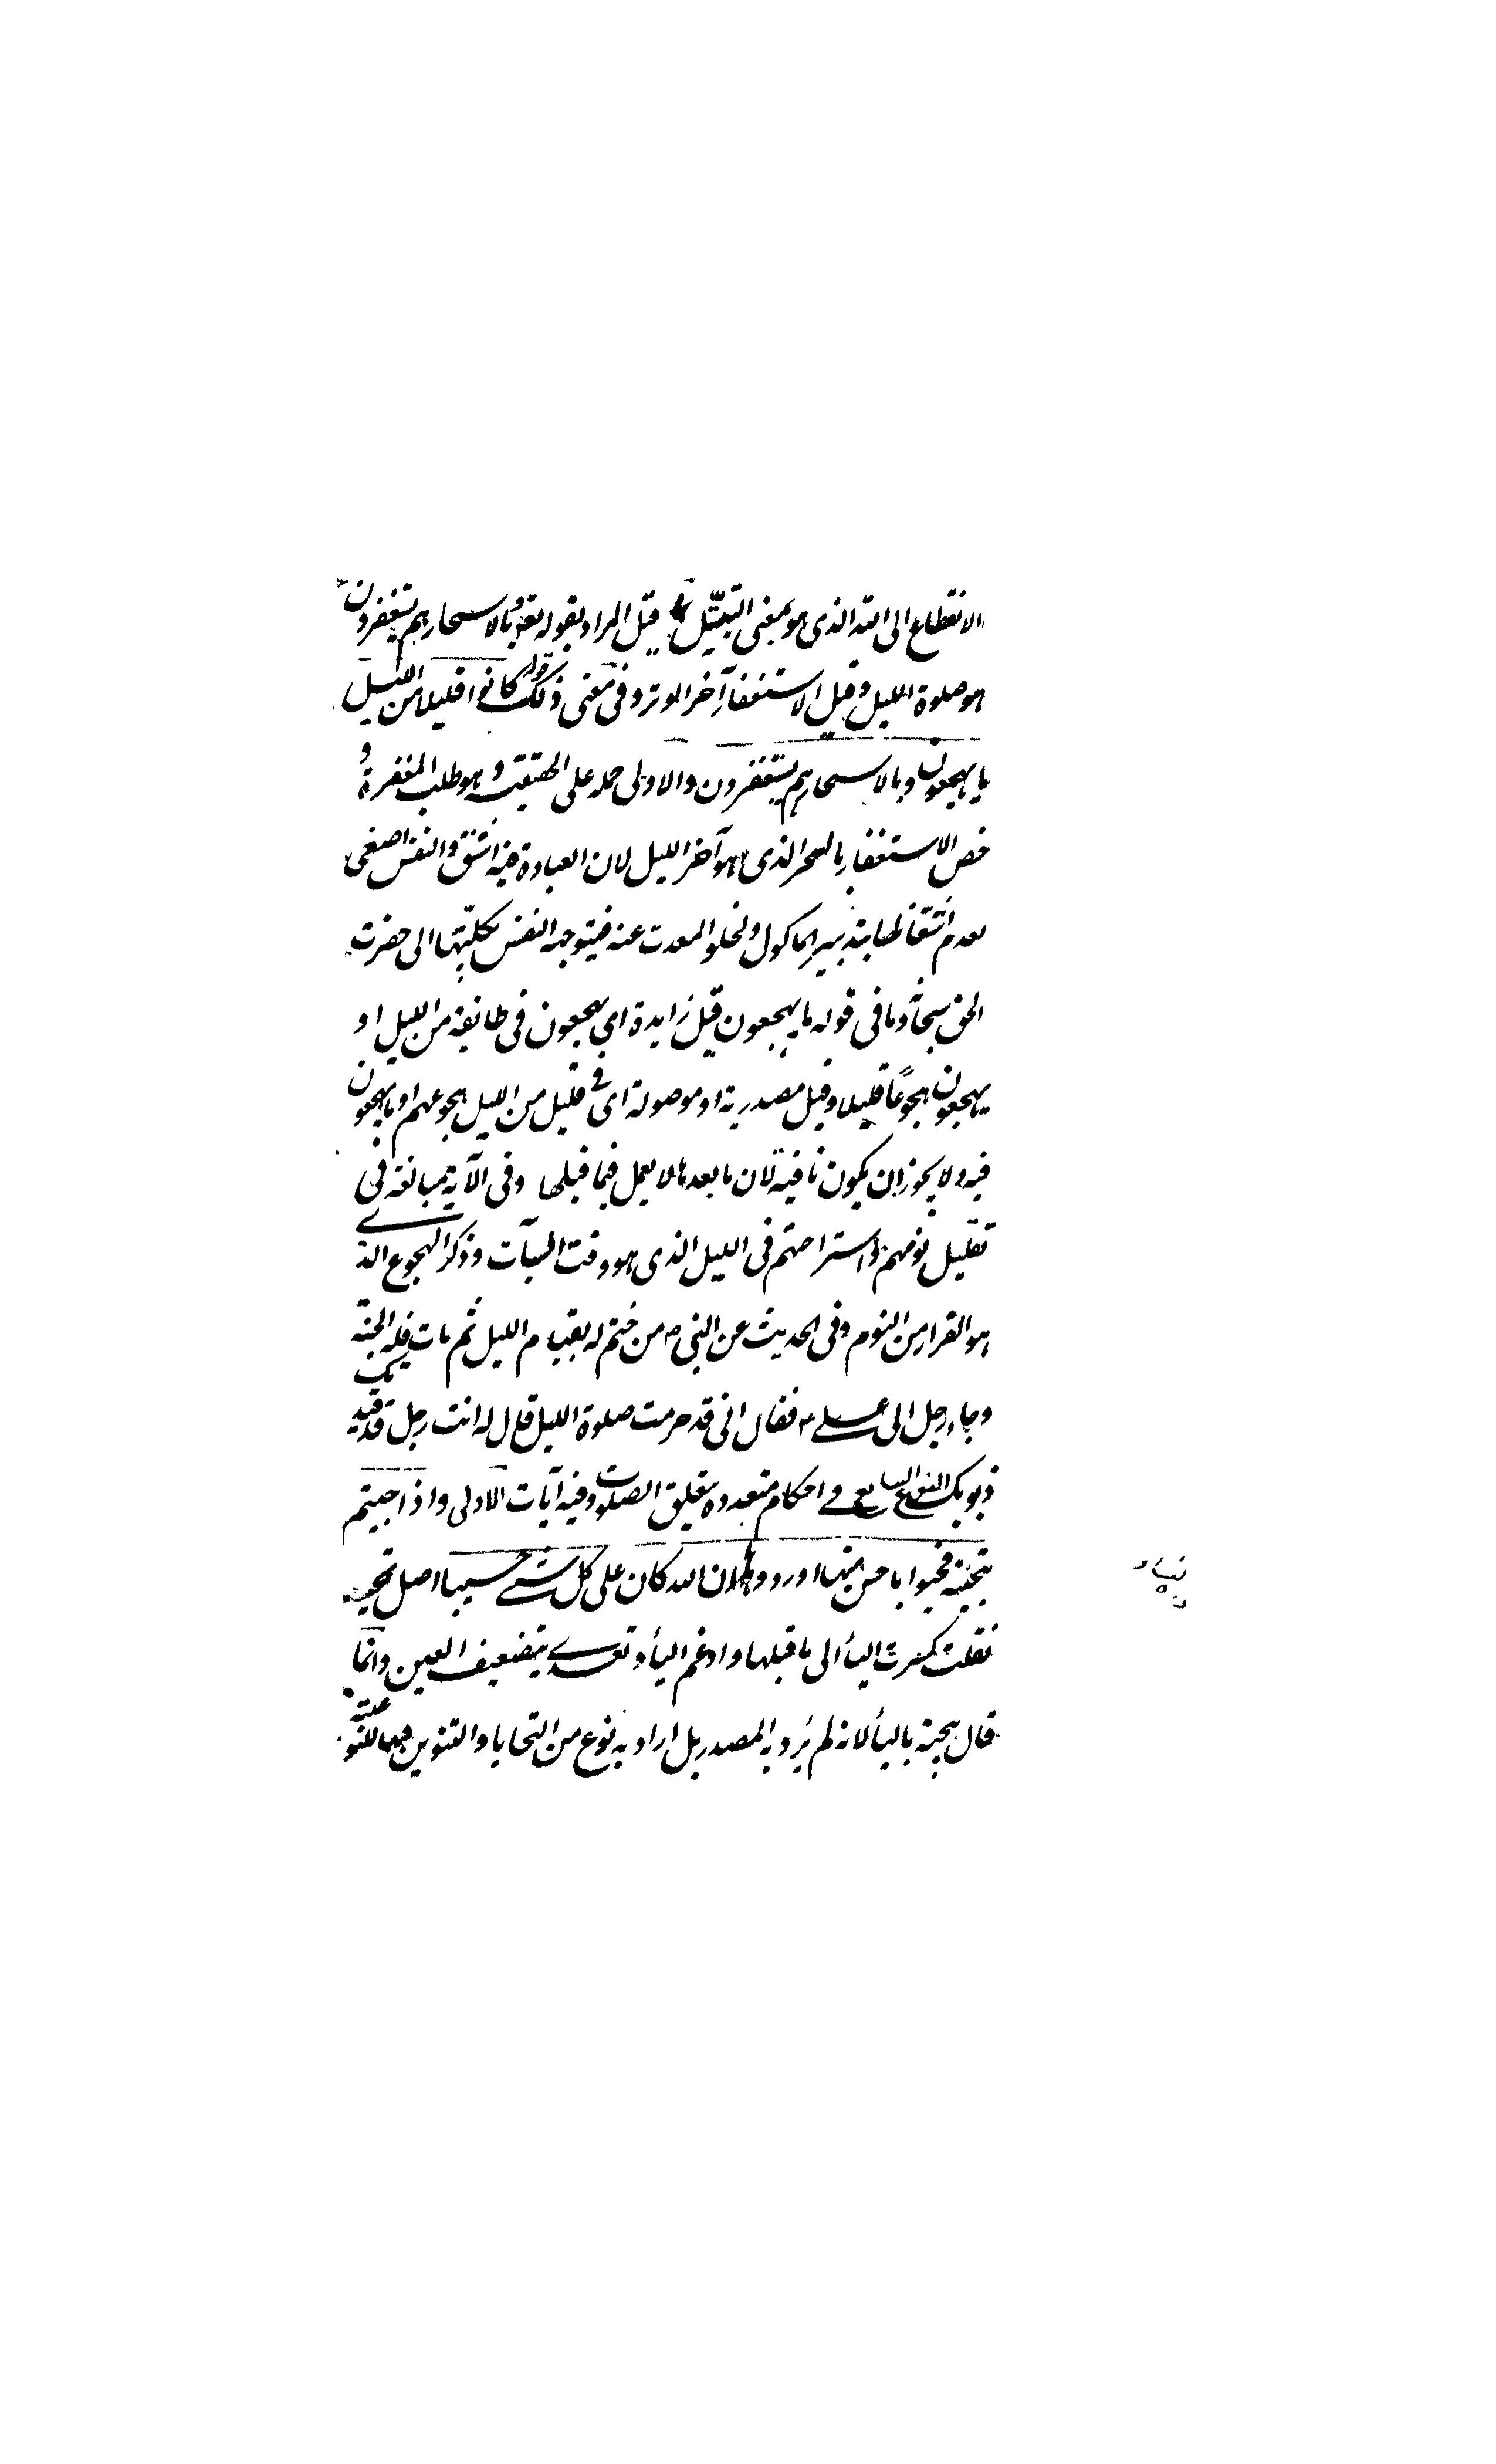 الانقطاع الى الله الذى هو بمعنى التبتّل قيل المراد بقوله تعالى وبالاسحار هم يستغفرون
هو صلوة الليل وقيل الاستغفار آخر الوتر وفى معنى ذلك قوله كانوا قليلا من الليل
ما يهجعون وبالاسحار هم يستغفرون والاولى حمله على الحقيقة وهو طلب المغفرة و
خص الاستغفار بالسحر الذى هو آخر الليل لان العبادة فيه اشق والنفس اصفى
لعدم اشتغالها بتدبير المأكول ولخلو المعدة عنه فيتوجه النفس بكليّتها الى حضرت
الحق سبحانه وما فى قوله ما يهجعون قيل زايدة اى يهجعون فى طائفة من الليل او
يهجعون هجوعًا قليلا وقيل مصدرية او موصولة اى فى قليل من الليل هجوعهم او ما يهجعون
فيه ولا يجوز ان يكون نافية لان ما بعدها لا يعمل فيما قبلها وفى الآية مبالغة فى
تقليل نومهم واستراحتهم فى الليل الذى هو وقت السبات وذكر الهجوع الذى
هو الفرار من النوم وفى الحديث عن النبى ص من ختم له بقيام الليل ثم مات فله الجنة
وجاء رجل الى على ع فقال انى قد حرمت صلوة الليل قال له انت رجل قد قيدتك
ذنوبك النوع السابع فى احكام متعدده يتعلق بالصلوت وفيه آيات الاولى واذا حييتم
بتحيّة فحيوا باحسن منها او ردوها ان الله كان على كل شىء حسيبا اصل تحية
نقلت كسرت اليأ الى ما قبلها وادغم اليأ وتعدى بتضعيف العين وانما
قال بتحية باليأ لانه لم يُرد به المصدر بل اراد به نوع من التحايا والتنوين فيها للنوعية